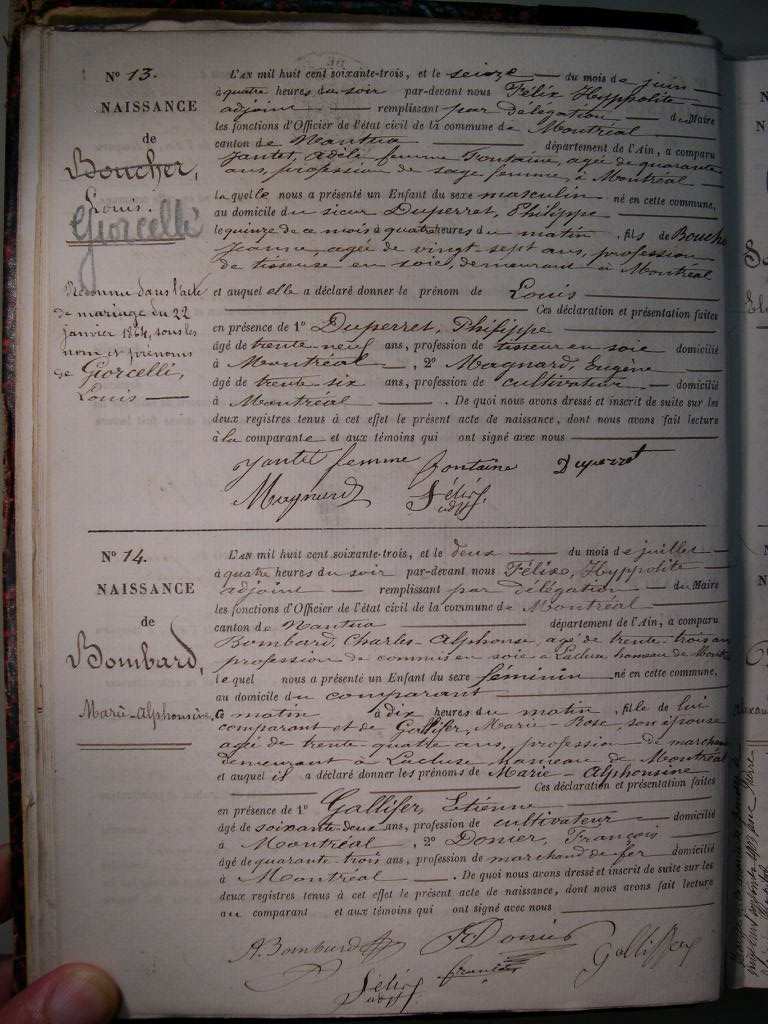 N° 13.
NAISSANCE
de
Boucher,
Louis.
Giorcelli
Reconnu dans l'acte
de mariage du 22
janvier 1864, sous les
nom et prénoms
de Giorcelli,
Louis —
L'AN mil huit cent soixante-trois, et le seize — du mois de juin
à quatre heures du soir par-devant nous Félix Hyppolite
adjoint — remplissant par délégation — du Maire
les fonctions d'Officier de l'état civil de la commune de Montréal
canton de Nantua département de l'Ain, a comparu
Jantet, Adèle femme Fontaine, agée de quarante
ans, profession de sage femme, à Montréal
laquelle nous a présenté un Enfant du sexe masculin né en cette commune,
au domicile du sieur Duperret, Philippe
le quinze de ce mois à quatre heures du matin, fils de Boucher
Jeanne, agée de vingt-sept ans, profession
de tisseuse en soie, demeurant à Montréal
et auquel elle a déclaré donner le prénom de Louis
Ces déclaration et présentation faites
en présence de 1° Duperret, Philippe
âgé de trente neuf ans, profession de tisseur en soie domicilié
à Montréal —, 2° Magnard, Eugène
âgé de trente six ans, profession de cultivateur — domicilié
à Montréal — . De quoi nous avons dressé et inscrit de suite sur les
deux registres tenus à cet effet le présent acte de naissance, dont nous avons fait lecture
à la comparante et aux témoins qui ont signé avec nous
Jantet femme fontaine Duperret
Magnard Félix
adjt
N° 14.
NAISSANCE
de
Bombard,
Marie-Alphonsine,
L'AN mil huit cent soixante-trois, et le deux — du mois de juillet
à quatre heures du soir par-devant nous Félix, Hyppolite
adjoint — remplissant par délégation — du Maire
les fonctions d'Officier de l'état civil de la commune de Montréal
canton de Nantua département de l'Ain, a comparu
Bombard, Charles-Alphonse, agé de trente-trois ans
profession de commis en soie à Lacluse hameau de
lequel nous a présenté un Enfant du sexe féminin né en cette commune,
au domicile du comparant
Ce matin à dix heures du matin, fille de lui
comparant et de Gallifer, Marie-Rose, son épouse
agée de trente-quatre ans, profession de
demeurant à Lacluse, hameau de Montréal
et auquel il a déclaré donner les prénoms de Marie-Alphonsine
Ces déclaration et présentation faites
en présence de 1° Gallifer, Etienne
âgé de soixante-deux ans, profession de cultivateur — domicilié
à Montréal —, 2° Donier, François
âgé de quarante-trois ans, profession de marchand de fer domicilié
à Montréal — . De quoi nous avons dressé et inscrit de suite sur les
deux registres tenus à cet effet le présent acte de naissance, dont nous avons fait lecture
au comparant et aux témoins qui ont signé avec nous
A. Bombard Donier Galliffer
Félix françois
adjt